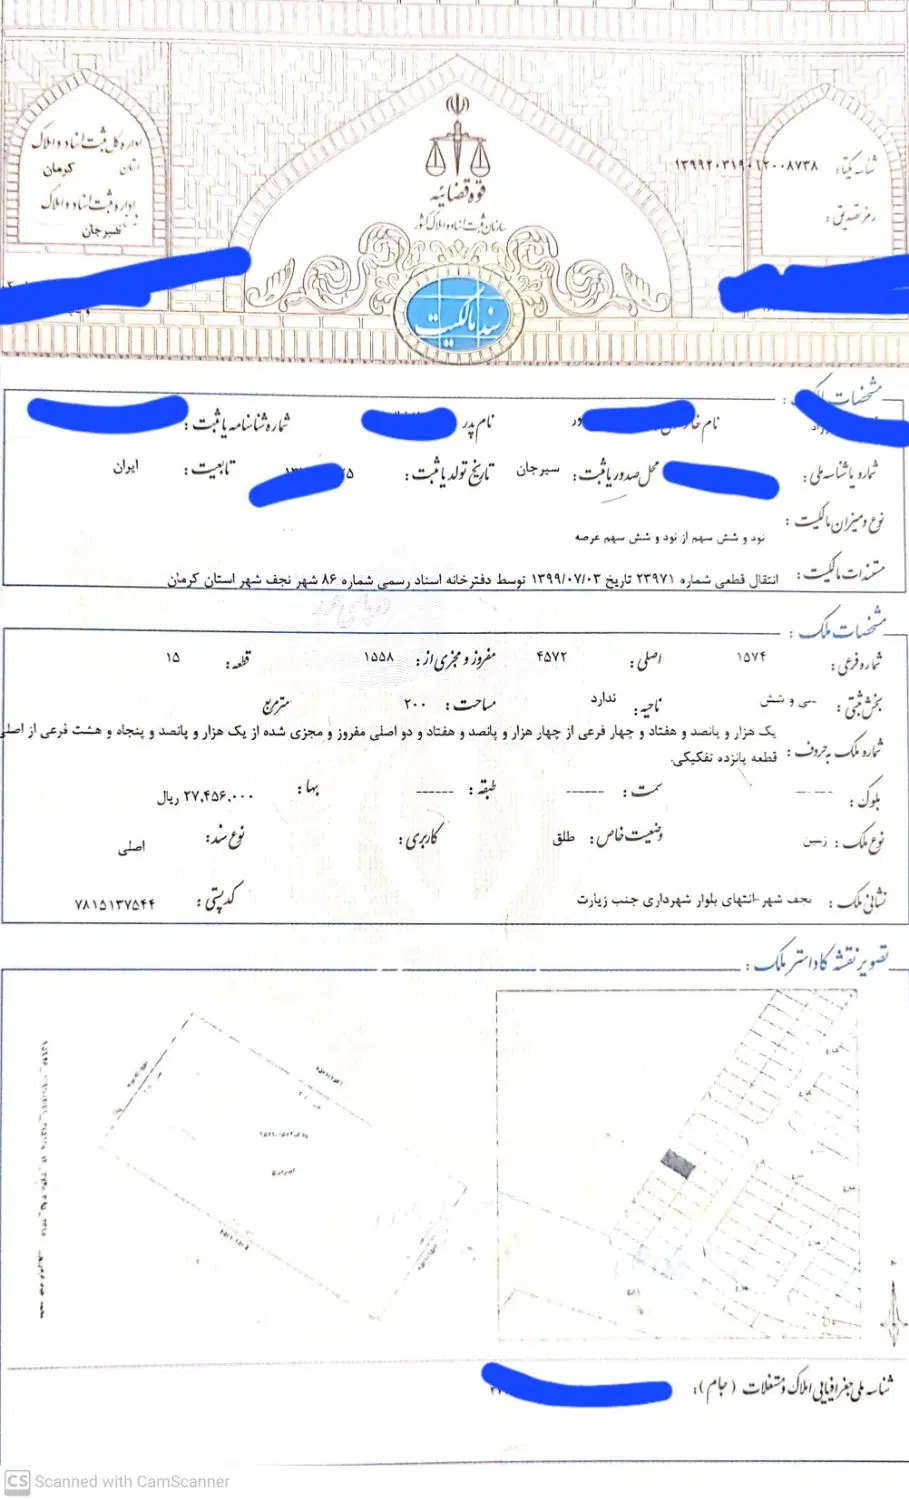 قوه قضائیه
سازمان ثبت اسناد و املاک کشور
سند مالکیت
شناسه یکتا: ۱۳۹۹۲۰۳۱۹۰۱۲۰۰۸۷۳۸
رمز تصدیق:
اداره کل ثبت اسناد و املاک
استان کرمان
اداره ثبت اسناد و املاک
سیرجان
مشخصات
نام پدر
شماره شناسنامه یا ثبت:
شماره یا شناسه ملی:
محل صدور یا ثبت: سیرجان
تاریخ تولد یا ثبت:
تابعیت: ایران
نوع و میزان مالکیت:
نود و شش سهم از نود و شش سهم عرصه
مستندات مالکیت: انتقال قطعی شماره ۲۳۹۷۱ تاریخ ۱۳۹۹/۰۷/۰۳ توسط دفترخانه اسناد رسمی شماره ۸۶ شهر نجف شهر استان کرمان
مشخصات ملک:
شماره فرعی: ۱۵۷۴ اصلی: ۴۵۷۲ مفروز و مجزی از: ۱۵۵۸ قطعه: ۱۵
بخش ثبتی: سی و شش ناحیه: ندارد مساحت: ۲۰۰ مترمربع
شماره ملک به حروف: یک هزار و پانصد و هفتاد و چهار فرعی از چهار هزار و پانصد و هفتاد و دو اصلی مفروز و مجزی شده از یک هزار و پانصد و پنجاه و هشت فرعی از اصلی
قطعه پانزده تفکیکی.
بلوک: ------ سمت: ------ طبقه: ------ بها: ۲۷,۴۵۶,۰۰۰ ریال
نوع ملک: زمین وضعیت خاص: طلق کاربری: نوع سند: اصلی
نشانی ملک: نجف شهر-انتهای بلوار شهرداری جنب زیارت کدپستی: ۷۸۱۵۱۳۷۵۴۴
تصویر نقشه کاداستر ملک:
شناسه ملی جغرافیایی املاک و مستغلات (جام):
CS Scanned with CamScanner